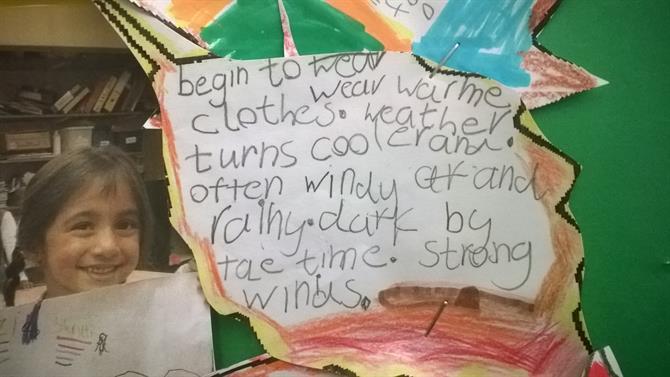 begin to wear
wear warme
clothes. weather
turns cooler and.
often windy and
rainy. dark by
tae time. strong
winds.